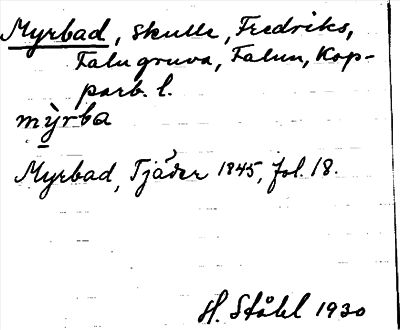 Myrbad, skulle, Fredriks,
Falu gruva, Falun, Kop-
parb. l.
mỳrba
Myrbad, Tjäder 1845, fol. 18.
H. Ståhl 1930